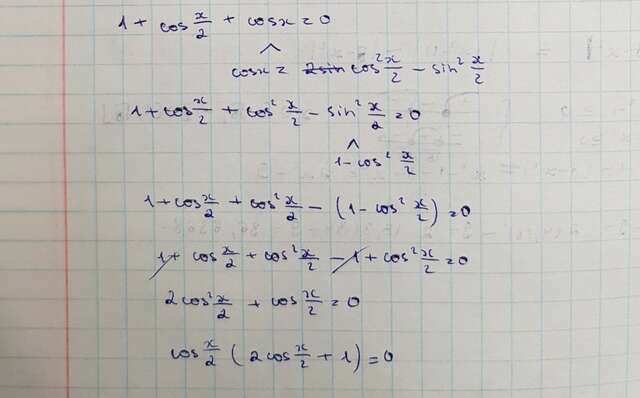 1 + cos x/2 + cos x = 0
cos x = 2sin cos² x/2 − sin² x/2
1 + cos x/2 + cos² x/2 − sin² x/2 = 0
1 − cos² x/2
1 + cos x/2 + cos² x/2 − (1 − cos² x/2) = 0
1 + cos x/2 + cos² x/2 − 1 + cos² x/2 = 0
2cos² x/2 + cos x/2 = 0
cos x/2 (2cos x/2 + 1) = 0